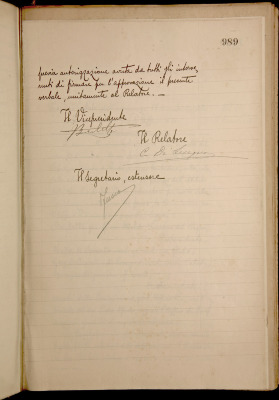 989
previa autorizzazione avuta da tutti gli interve,
nuti di firmare per l'approvazione il presente
verbale, unitamente al Relatore. —
Il Vicepresidente
Il Relatore
C. De
Il Segretario, estensore